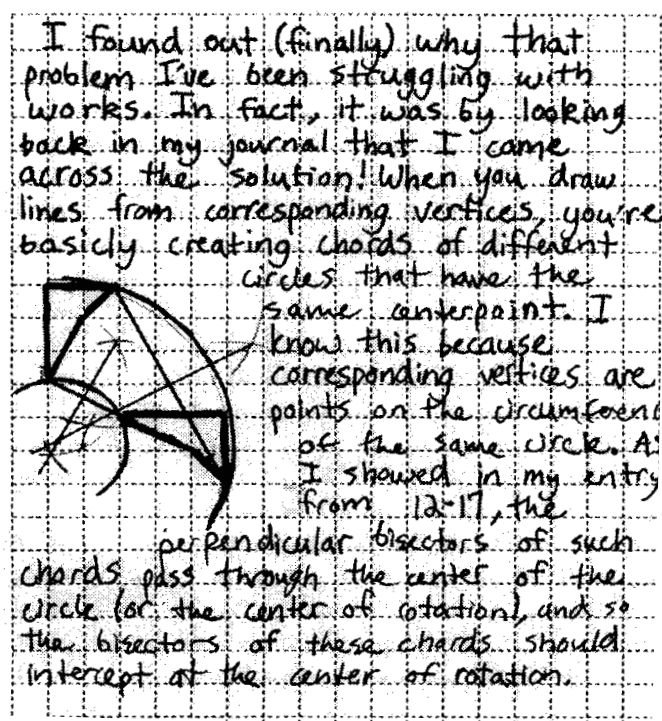 I found out (finally) why that
problem I've been struggling with
works. In fact, it was by looking
back in my journal that I came
across the solution! When you draw
lines from corresponding vertices, you're
basicly creating chords of different
circles that have the
same centerpoint. I
know this because
corresponding vertices are
points on the circumferenc
of the same circle. As
I showed in my entry
from 12-17, the
perpendicular bisectors of such
chords pass through the center of the
circle (or the center of rotation), and so
the bisectors of these chords should
intercept at the center of rotation.